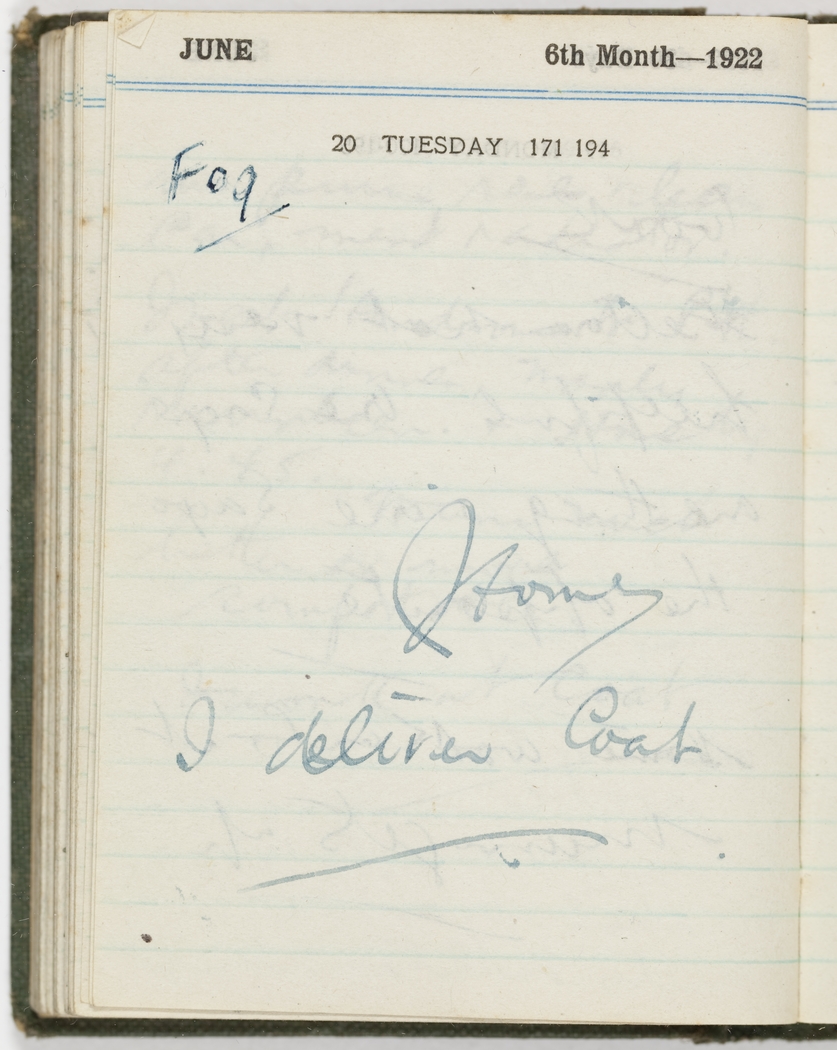 JUNE 6th Month—1922
20 TUESDAY 171 194
Fog
Home
I deliver Coat